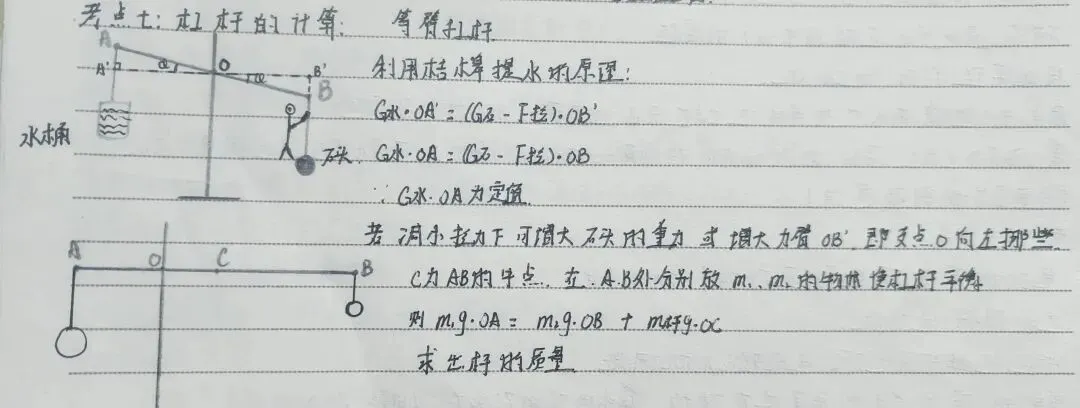 考点七：杠杆的计算： 等臂杠杆
利用桔槔提水的原理：
A
A'
α
O
α
B'
B
G水·OA' = (G石 - F拉)·OB'
水桶
石头
G水·OA = (G石 - F拉)·OB
∵ G水·OA 为定值
若减小拉力F可增大石头的重力或增大力臂OB' 即支点O向左挪些
A
O
C
B
C为AB的中点, 在 A.B处分别放 m₁、m₂ 的物体使杠杆平衡
则 m₁g·OA = m₂g·OB + m杆g·OC
求出杆的质量